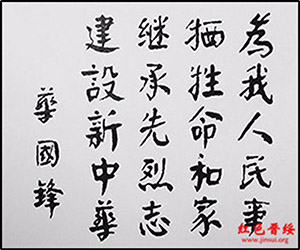 為我人民事
牺牲命和家
继承先烈志
建設新中華
華國鋒
红色晋绥
www.jinsui.org